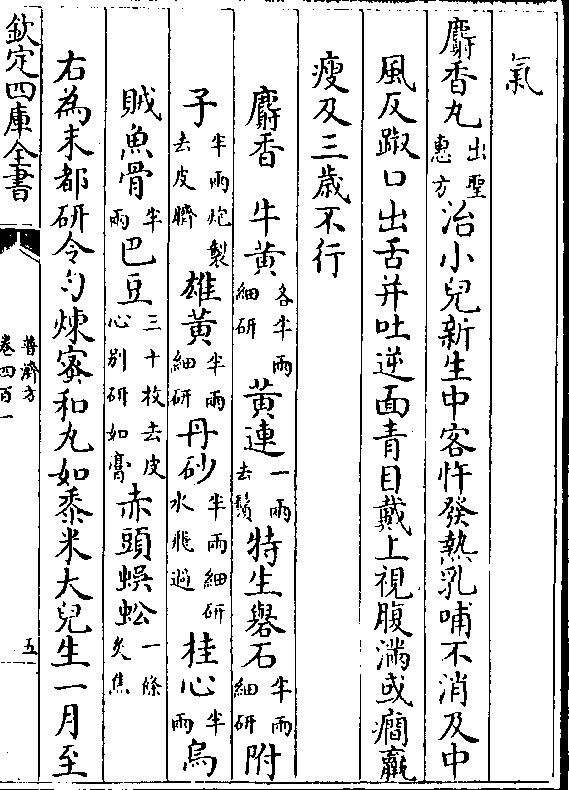 氣
麝香丸出聖惠方治小兒新生中客忤發熱乳哺不消及中
風反踧口出舌并吐逆面青目戴上視腹滿或癎羸
瘦及三歳不行
麝香 牛黄各半兩細研 黄連一兩去鬚 特生礐石半兩細研 附
子半兩炮製去皮臍 雄黄半兩細研 丹砂半兩細研水飛過 桂心半兩 烏
賊魚骨半兩 巴豆三十枚去皮心别研如膏 赤頭蜈蚣一條炙焦
右為末都研令勻煉蜜和丸如黍米大兒生一月至
欽定四庫全書
普濟方
卷四百一
五